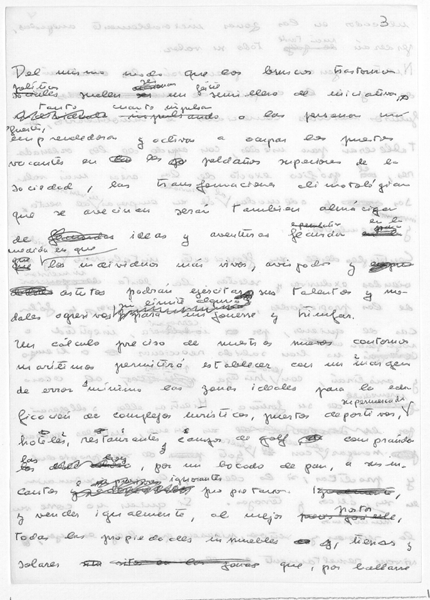 3
Del mismo modo que los bruscos trastornos
políticos suelen ser un semillero de iniciativas,
tanto cuanto impulsan a las personas más
emprendedoras y activas a ocupar los puestos
vacantes en los peldaños superiores de la
sociedad, las transformaciones climatológicas
que se avecinan serán también almáciga
de ideas y aventuras en la
medida en que
los individuos más vivos, avispados y
astutos podrán ejercitar sin límite alguno sus talentos y mo-
dales agresivos y triunfar.
Un cálculo preciso de nuestros nuevos contornos
marítimos permitirá establecer con un margen
de error mínimo las zonas ideales para la edi-
ficación de complejos turísticos, puertos deportivos,
hoteles, restaurantes y campos de golf comprando
las hoy, por un bocado de pan, a sus in-
cautos o ignorantes propietarios
y vender igualmente, al mejor postor
todas las propiedades inmuebles, tierras y
solares que, por hallarse